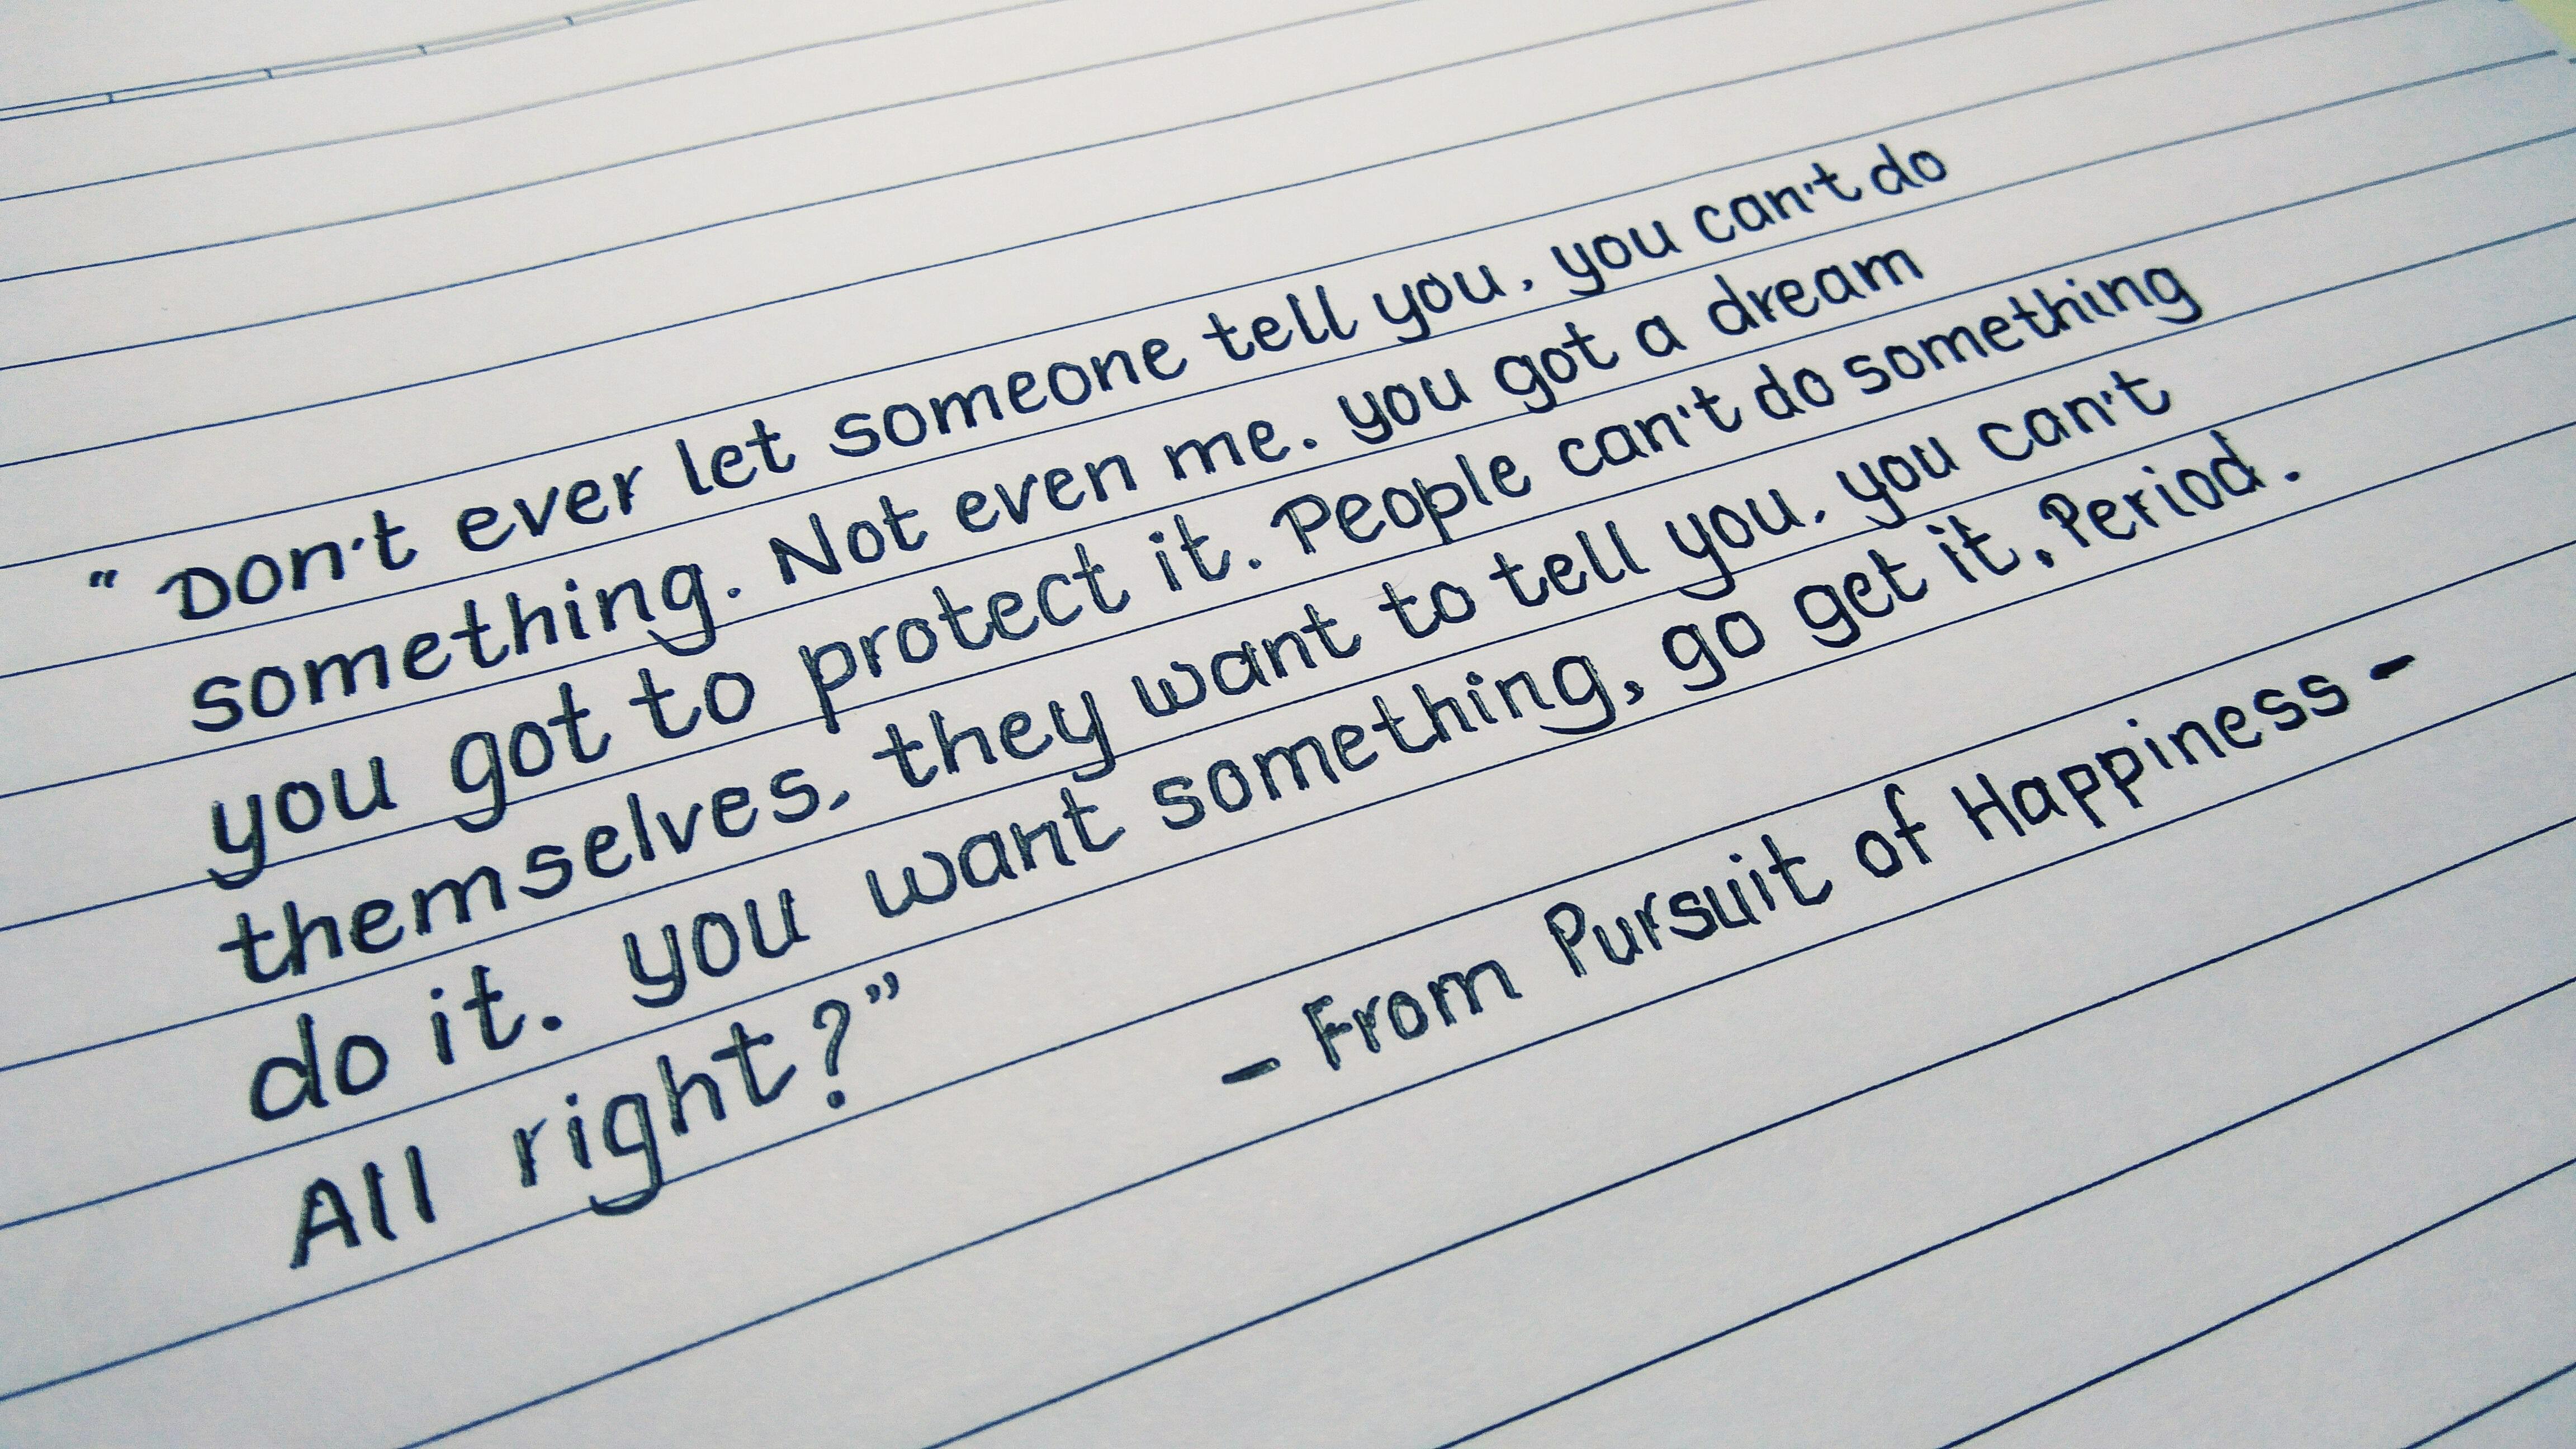 " Don't ever let someone tell you, you can't do
something. Not even me. you got a dream
you got to protect it. People can't do something
themselves, they want to tell you, you can't
do it. you want something, go get it. Period.
All right?"
- From Pursuit of Happiness -